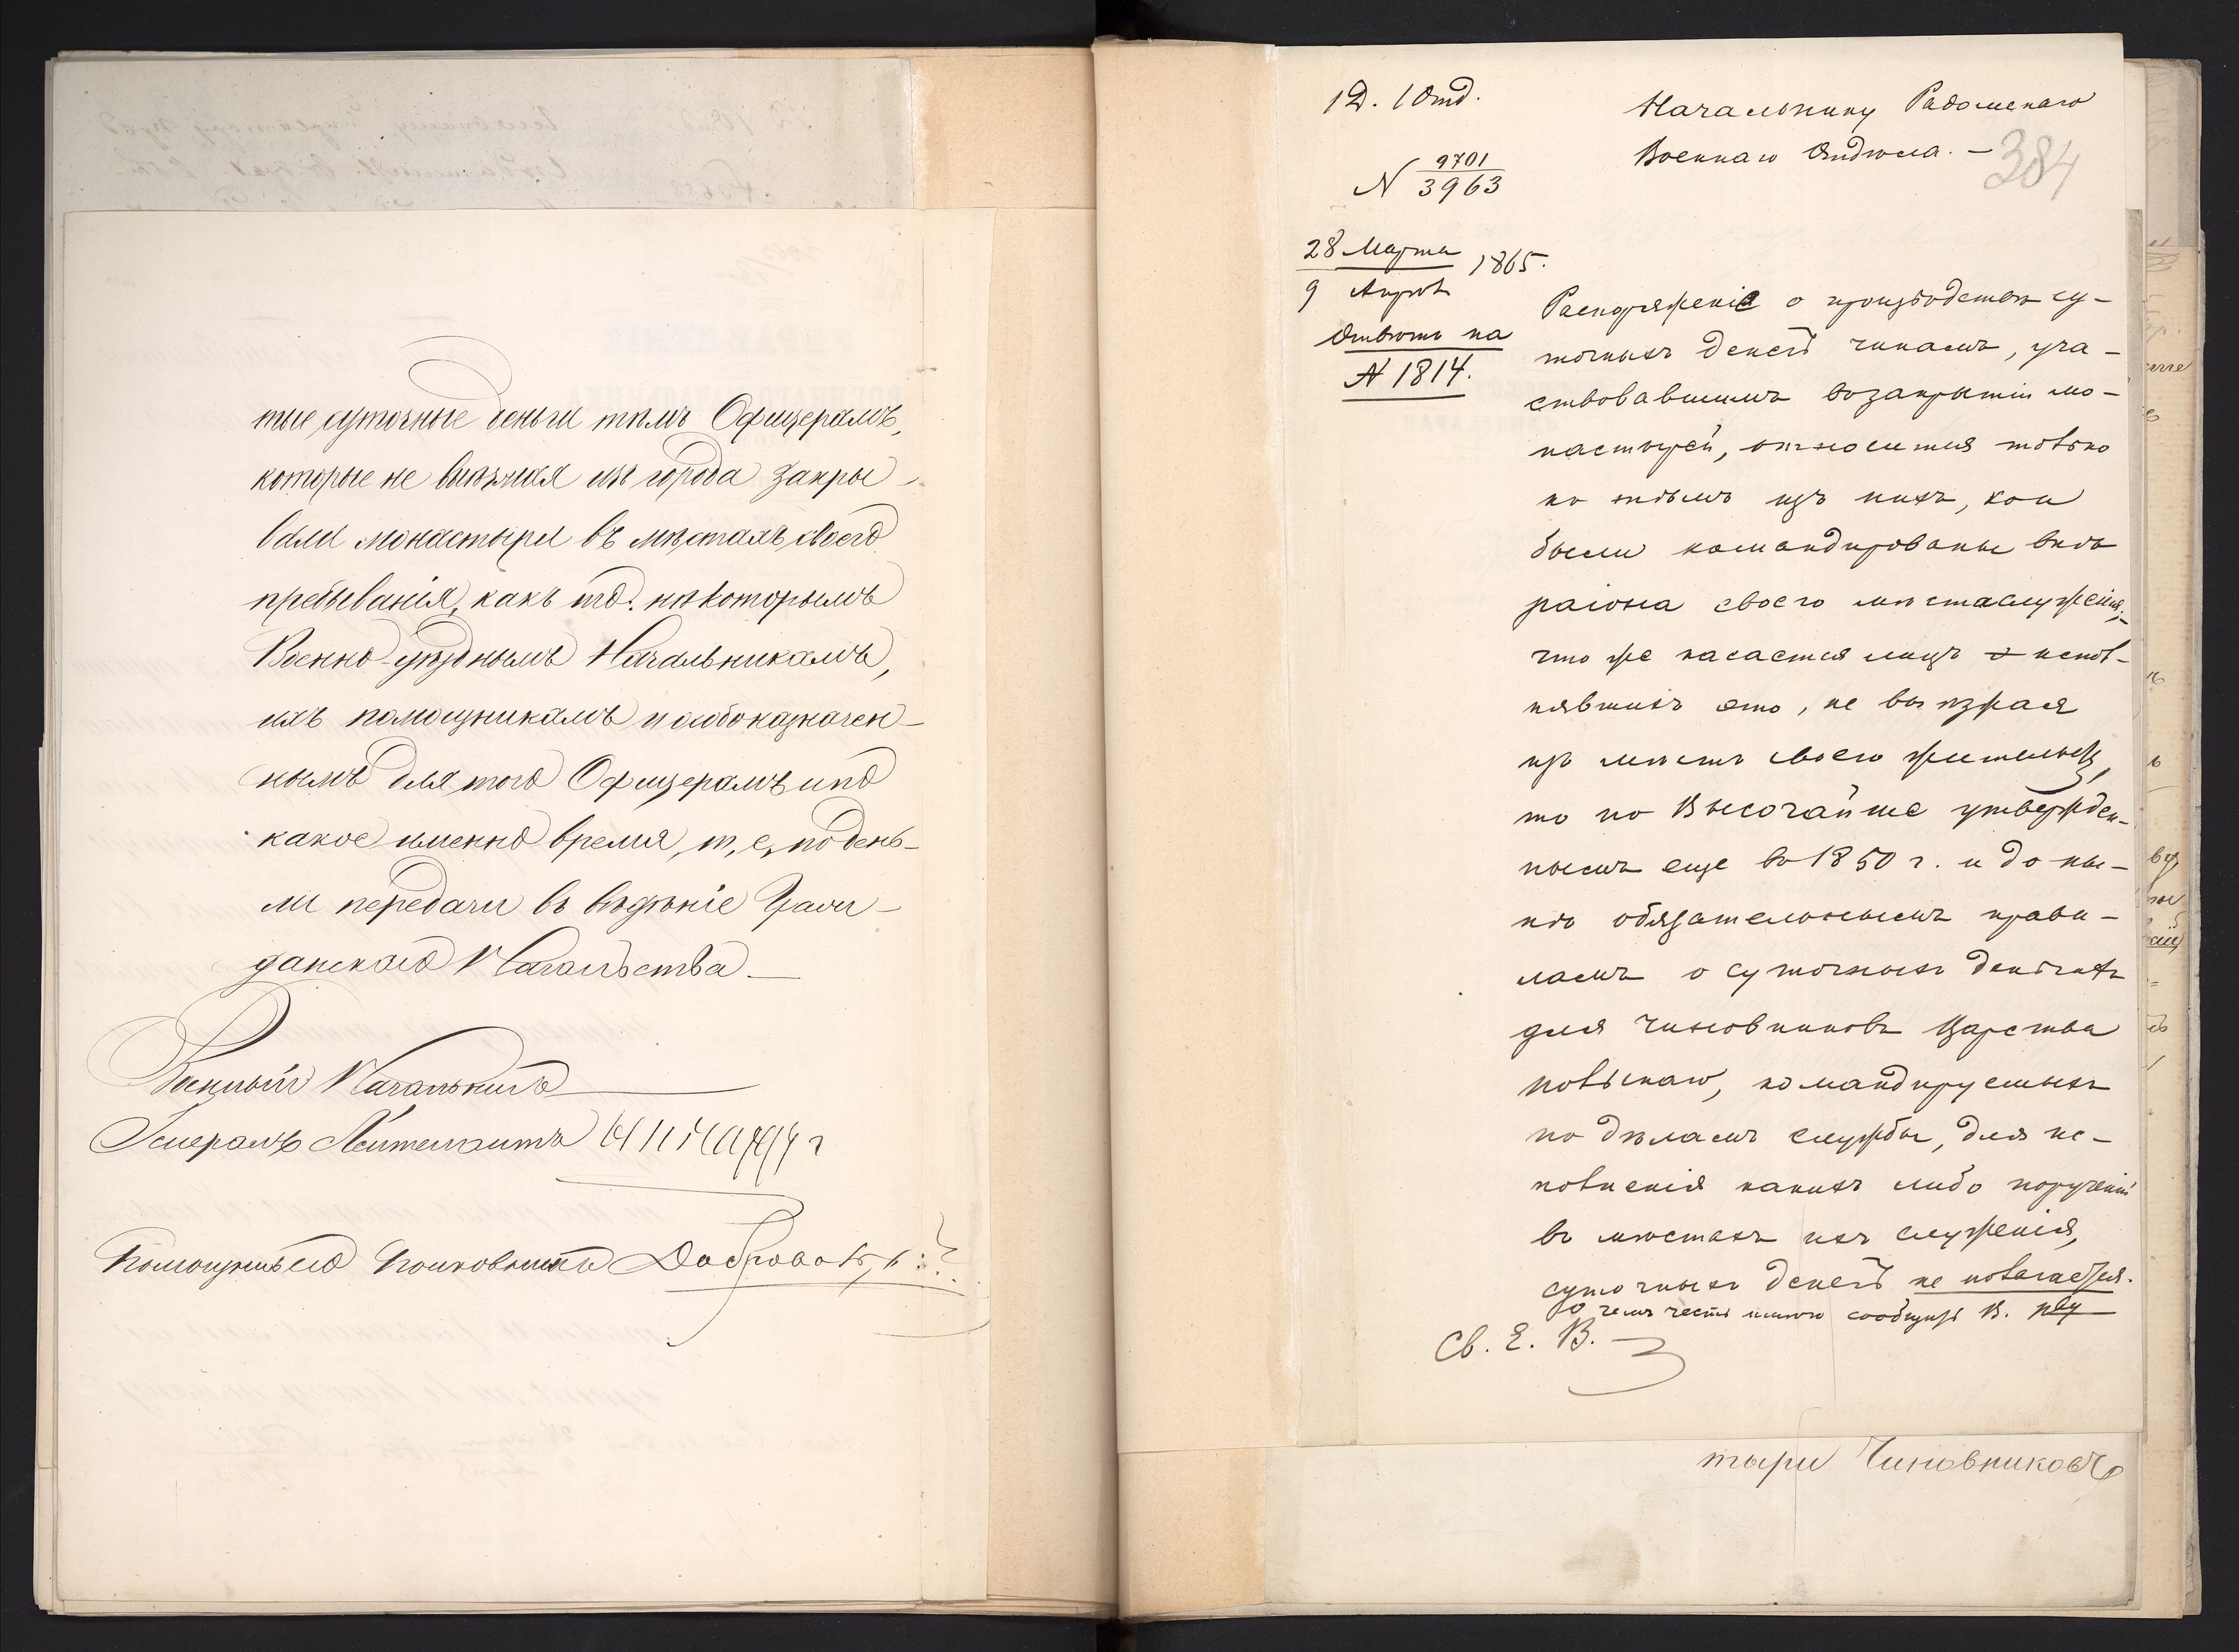 тые суточные деньги тѣмъ Офицерамъ,
которые не выѣзжая изъ города закры-
вали монастыри въ мѣстахъ своего
пребыванія, какъ то: нѣкоторымъ
Военно-уѣзднымъ Начальникамъ,
ихъ помощникамъ и особо назначен-
нымъ для того Офицерамъ и по
какое именно время, т. е, по день-
ли передачи въ вѣдѣніе Граж-
данскаго Начальства
Военный Начальникъ
Генералъ Лейтенантъ
Помощникъ его Полковникъ
1 Д. 1 Отд.
Начальнику Радомскаго
Военнаго Отдѣла. —
384
N 9701
3963
28 Марта
9 Апрѣл 1865.
Отвѣтъ на
N 1814.
Распоряженіе о производствѣ су-
точныхъ денегъ чинамъ, уча-
ствовавшимъ въ закрытіи мо-
настырей, относится только
къ тѣмъ изъ нихъ, кои
были командированы внѣ
раіона своего мѣстаслуженія;-
что же касается лицъ испол-
нявшихъ это, не выѣзжая
изъ мѣстъ своего жительства,
то по Высочайше утвержден-
нымъ еще въ 1850 г. и до ны-
нѣ обязательнымъ прави-
ламъ о суточныхъ деньгахъ
для чиновниковъ Царства
Польскаго, командируемыхъ
по дѣламъ службы, для ис-
полненія какихъ либо порученій
въ мѣстахъ ихъ служенія,
суточныхъ денегъ не полагается.
О чемъ честь имѣю сообщить В. Пву
Св. Е. В.
тари Чиновниковъ